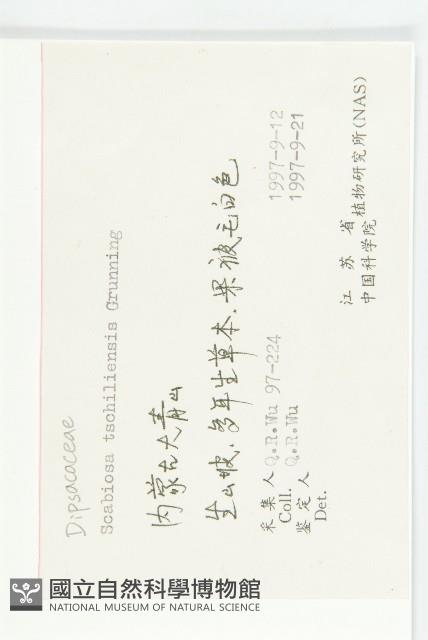 Dipsacaceae
Scabiosa tschiliensis Grunning
内蒙古大青山
生山坡,多年生草本,果被毛白色
采集人 Q.R.Wu 97-224 1997-9-12
Coll.
鉴定人 Q.R.Wu 1997-9-21
Det.
江苏省植物研究所(NAS)
中国科学院
國立自然科學博物館
NATIONAL MUSEUM OF NATURAL SCIENCE